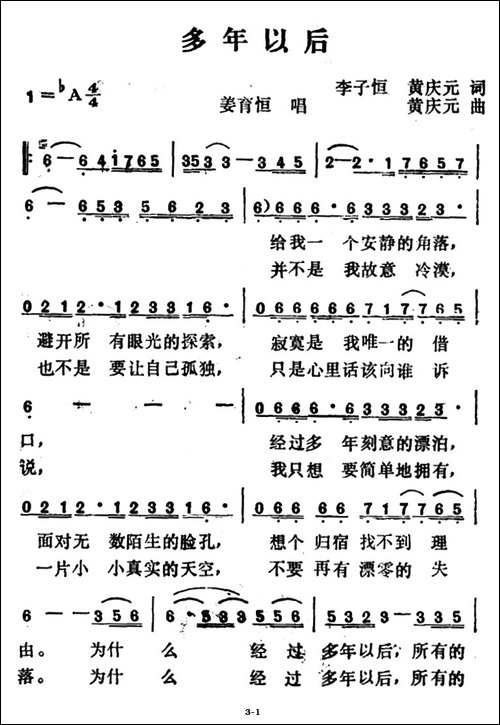 多年以后
李子恒 黄庆元 词
1=♭A 4/4 姜育恒 唱 黄庆元 曲
6 — 6 4 i 7 6 5 | 3 5 3 3 — 3 4 5 | 2 — 2 · 1 7 6 5 7 |
6 — 6 5 3 5 6 2 3 | 6) 6 6 6 · 6 3 3 3 2 3 ·
给我一 个安静的角落,
并不是 我故意 冷漠,
0 2 1 2 · 1 2 3 3 1 6 · | 0 6 6 6 6 6 7 1 7 7 6 5
避开所 有眼光的探索, 寂寞是 我唯一的 借
也不是 要让自己孤独, 只是心里话该向谁 诉
6 — — — | 0 6 6 6 · 6 3 3 3 2 3 ·
口, 经过多 年刻意的漂泊,
说, 我只想 要简单地拥有,
0 2 1 2 · 1 2 3 3 1 6 · | 0 6 6 6 6 7 1 7 7 6 5
面对无 数陌生的脸孔, 想个归宿找不到 理
一片小 小真实的天空, 不要再有漂零的 失
6 — — 3 5 6 | 6 · 3 5 3 5 6 | 5 3 2 3 — 3 3 5
由。 为什 么 经 过 多年以后, 所有的
落。 为什 么 经 过 多年以后, 所有的
3-1